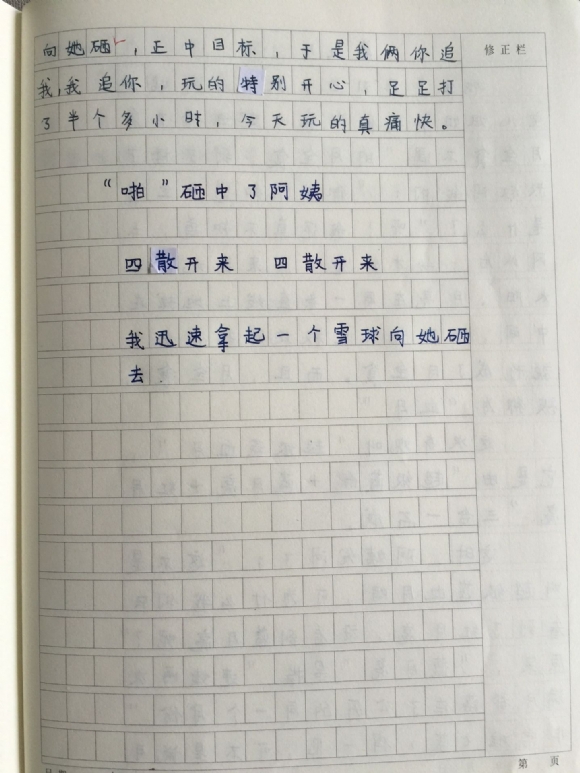 修正栏
向她砸，正中目标，于是我俩你追
我，我追你，玩的特别开心，足足打
了半个多小时，今天玩的真痛快。
“啪”砸中了阿姨
四散开来 四散开来
我迅速拿起一个雪球向她砸
去.
第 页